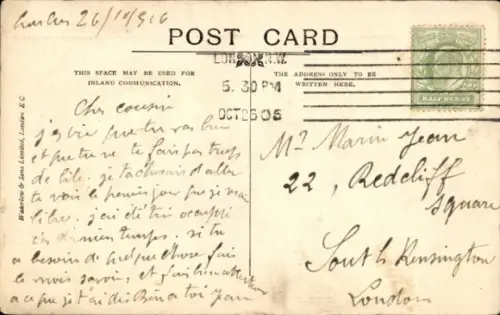 Londres 26/10/906
POST CARD
LONDON N.W.
5.30 PM
OCT 26 06
HALF PENNY
THIS SPACE MAY BE USED FOR
INLAND COMMUNICATION.
THE ADDRESS ONLY TO BE
WRITTEN HERE.
Waterlow & Sons Limited, London E.C.
Cher cousin
que tu vas bien
et que tu ne te fais pas trop
de bile. je tacherai d'aller
te voir le premier jour que je serai
libre. j'ai été très occupé
ces derniers temps. si tu
a besoin de quelque chose fais
le moi savoir, et fais bien attention
a ce que je t'ai dis Bien a toi Jean
Mr Marin Jean
22, Redcliff
Square
South Kensington
London